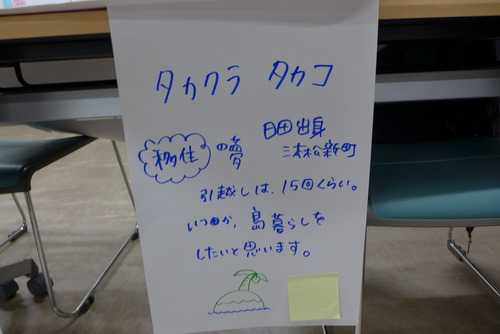 タカクラ タカコ
日田出身
移住の夢 三本松新町
引越しは、15回くらい。
いつか、島暮らしを
したいと思います。